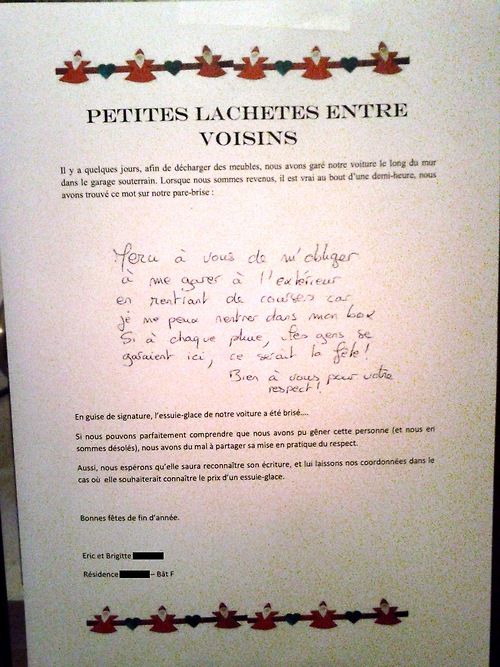 PETITES LACHETES ENTRE
VOISINS
Il y a quelques jours, afin de décharger des meubles, nous avons garé notre voiture le long du mur
dans le garage souterrain. Lorsque nous sommes revenus, il est vrai au bout d'une demi-heure, nous
avons trouvé ce mot sur notre pare-brise :
Merci à vous de m'obliger
à me garer à l'extérieur
en rentrant de courses car
je ne peux rentrer dans mon box
Si à chaque pluie, les gens se
garaient ici, ce serait la fête !
Bien à vous pour votre
respect !
En guise de signature, l'essuie-glace de notre voiture a été brisé....
Si nous pouvons parfaitement comprendre que nous avons pu gêner cette personne (et nous en
sommes désolés), nous avons du mal à partager sa mise en pratique du respect.
Aussi, nous espérons qu'elle saura reconnaître son écriture, et lui laissons nos coordonnées dans le
cas où elle souhaiterait connaître le prix d'un essuie-glace.
Bonnes fêtes de fin d'année.
Eric et Brigitte
Résidence – Bât F